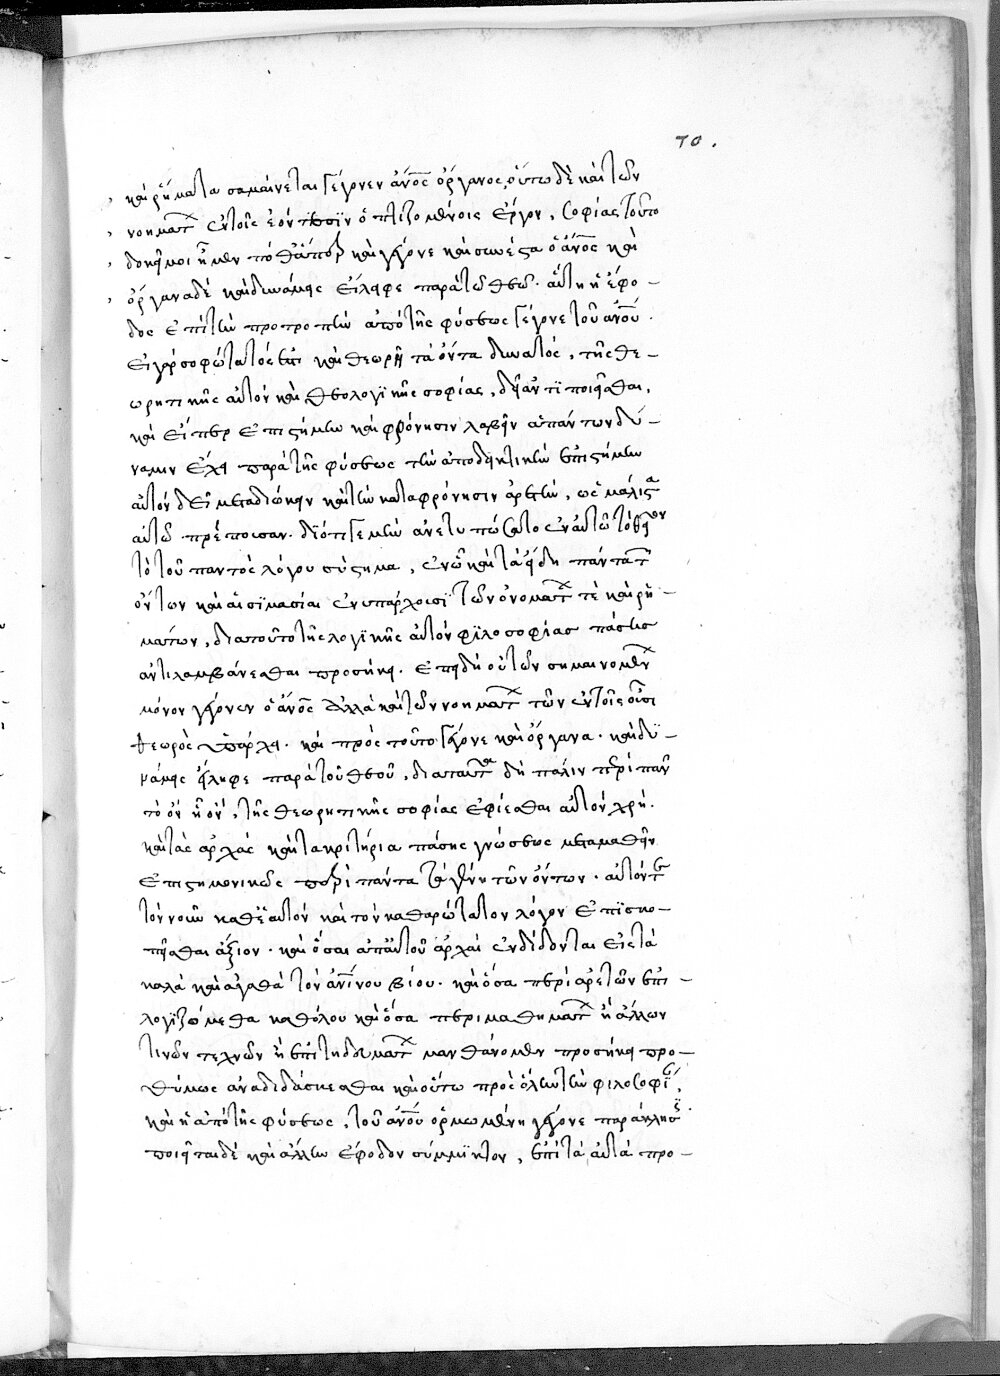 70.
καὶ ῥήματα σαμαίνεται γέγονεν ἄνος ὄργανος, οὕτω δὲ καὶ τῶν
νοημάτ ἐν τοῖς ἐοῦσιν ὀπλιζομένοις ἔργον, σοφίας τοῦτο
δοκῆ μοι ἦμεν ποθ' ἅπερ καὶ γέγονε καὶ συνέστα ὁ ἄνος καὶ
ὄργανα δὲ καὶ δυνάμεις εἴληφε παρὰ τῶ θεῶ. αὕτη ἡ ἔφο-
δος ἐπὶ τὴν προτροπὴν ἀπὸ τῆς φύσεως γέγονε τοῦ ἀνου.
εἰ γὰρ σοφώτατός ἐστι καὶ θεωρῆ τὰ ὄντα δυνατός, τῆς θε-
ωρητικῆς αὐτὸν καὶ θεολογικῆς σοφίας, δεῖ ἀντιποιεῖσθαι,
καὶ εἴπερ ἐπιστήμην καὶ φρόνησιν λαβεῖν ἁπάντων δύ-
ναμιν ἔχει παρὰ τῆς φύσεως τὴν ἀποδεικτικὴν ἐπιστήμην
αὐτὸν δεῖ μεταδιώκειν καὶ τὴν κατὰ φρόνησιν ἀρετὴν, ὡς μάλιστα
αὐτῶ πρέποισαν. διότι γε μὴν ἀνετυπώσατο ἐν αὐτῶ τὸ θεῖον
τὸ τοῦ παντὸς λόγου σύστημα, ἐν ὧ καὶ τὰ εἴδη πάντα τ
ὄντων καὶ αἱ σημασίαι ἐνυπάρχοισι τῶν ὀνομάτ τὲ καὶ ῥη-
μάτων, διὰ τοῦτο τῆς λογικῆς αὐτὸν φιλοσοφίας πάσης
ἀντιλαμβάνεσθαι προσήκει. ἐπειδὴ οὐ τῶν σημαινομέν
μόνον γέγονεν ὁ ἄνος ἀλλὰ καὶ τῶν νοημάτ τῶν ἐν τοῖς οὖσι
θεωρὸς ὑπάρχει. καὶ πρὸς τοῦτο γέγονε καὶ ὄργανα. καὶ δυ-
νάμεις εἴληφε παρὰ τοῦ θεοῦ, διὰ ταῦτα δὴ πάλιν περὶ πᾶν
τὸ ὂν ἧ ὂν, τῆς θεωρητικῆς σοφίας ἐφίεσθαι αὐτὸν χρή.
καὶ τὰς ἀρχὰς καὶ τὰ κριτήρια πάσης γνώσεως μεταμαθεῖν
ἐπιστημονικῶς περὶ πάντα τὰ γένη τῶν ὄντων. αὐτόν τε
τὸν νοῦν καθ' ἑαυτὸν καὶ τὸν καθαρώτατον λόγον ἐπισκο-
πεῖσθαι ἄξιον. καὶ ὅσαι ἀπ' αὐτοῦ ἀρχαὶ ἐνδίδονται εἰς τὰ
καλὰ καὶ ἀγαθὰ τὸν ἀνίνου βίου. καὶ ὅσα περὶ ἀρετῶν ἐπι-
λογιζόμεθα καθόλου καὶ ὅσα περὶ μαθημάτ ἢ ἄλλων
τινῶν τεχνῶν ἢ ἐπιτηδευμάτ μανθάνομεν προσήκει προ-
θύμως ἀναδιδάσκεσθαι καὶ οὕτω πρὸς ὅλην τὴν φιλοσοφί,
καὶ ἡ ἀπὸ τῆς φύσεως, τοῦ ἀνου ὁρμωμένη γέγονε παράκλησι.
ποιεῖται δὲ καὶ ἄλλην ἔφοδον σύμμικτον, ἐπὶ τὰ αὐτὰ προ-